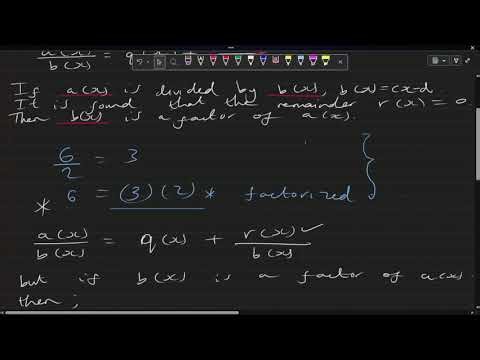 a(x)/b(x) = q(x) +
If a(x) is divided by b(x), b(x)=cx-d
It is found that the remainder r(x)=0
Then b(x) is a factor of a(x).
6/2 = 3
* 6 = (3)(2) * factorized
a(x)/b(x) = q(x) + r(x)/b(x) ✓
but if b(x) is a factor of a(x)
then;